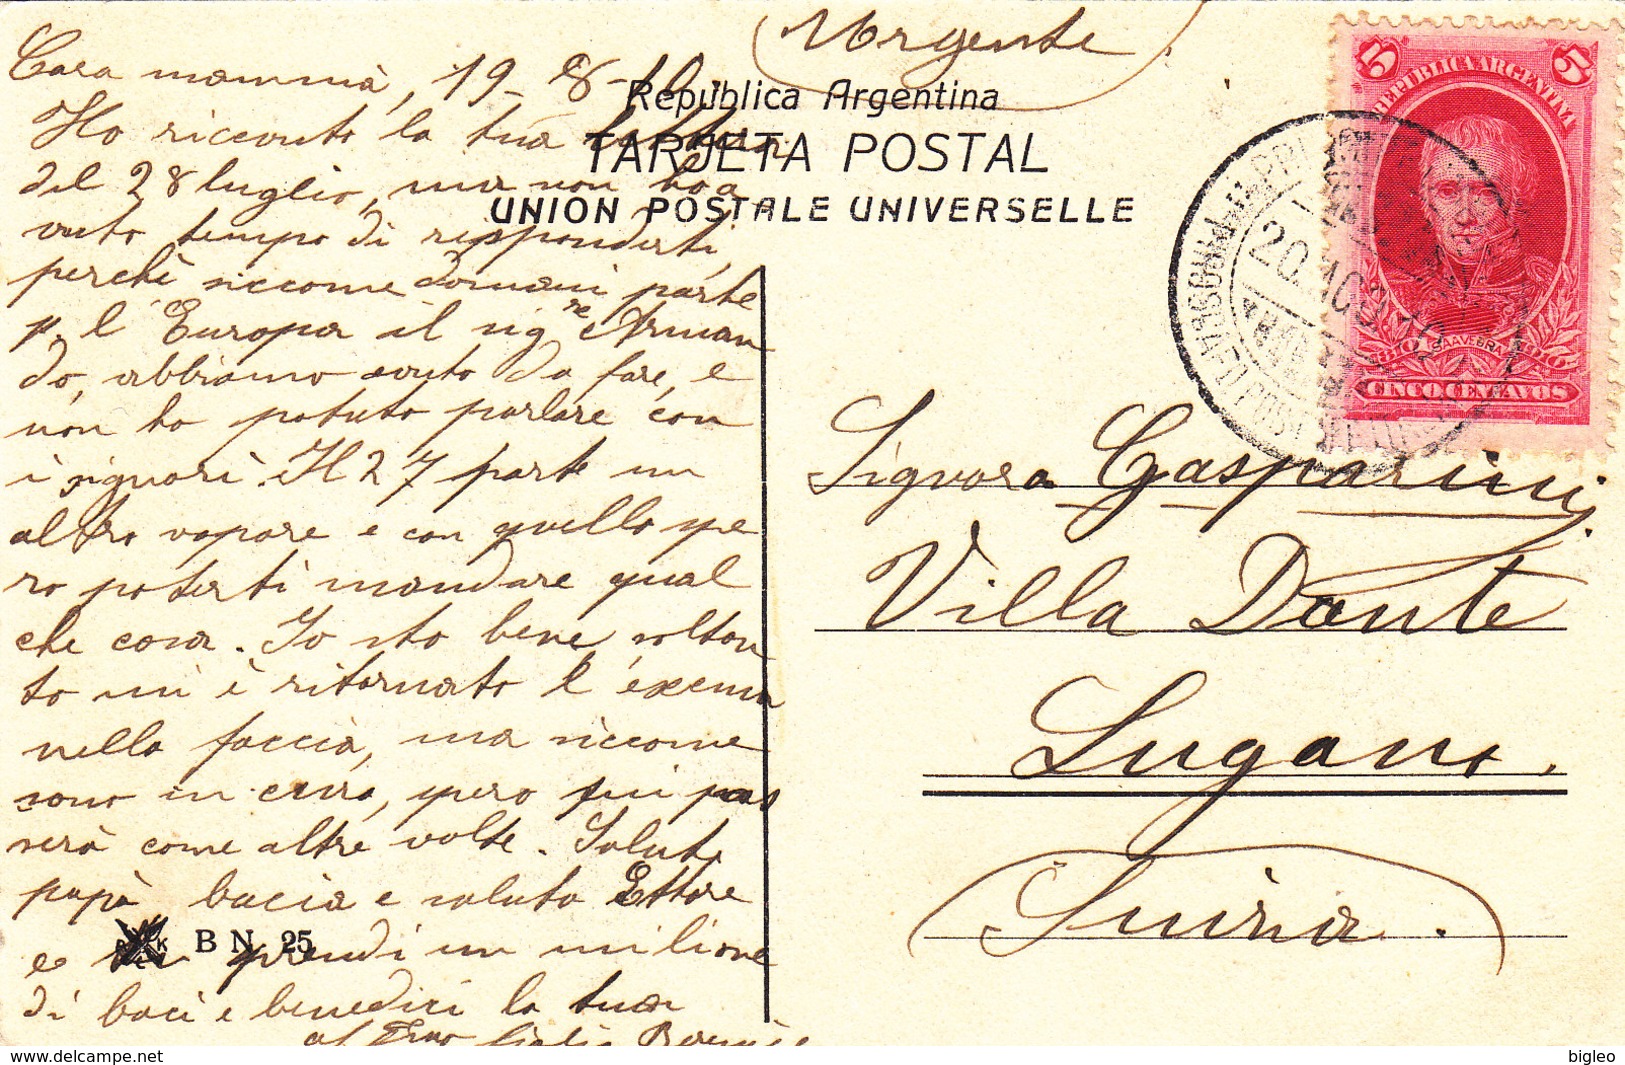 Urgente
Cara mammà, 19-8-10.
Ho riccevuto la tua lettera
del 28 luglio, ma non ho a
vuto tempo di risponderti,
perchè siccome domani parte
p. l'Europa il sig.re Arman
do, abbiamo avuto da fare, e
non ho potuto parlare con
i signori. Il 27 parte un
altro vapore e con quello spe
ro poterti mandare qual
che cosa. Io sto bene, soltan
to mi è ritornato l'exema
nella faccia, ma siccome
sono in cura, spero mi pas
serà come altre volte. Saluta
papà bacia e saluta Ettore
e tu prendi un milione
di baci e benedici la tua
República Argentina
TARJETA POSTAL
UNION POSTALE UNIVERSELLE
B N 25
5 5
REPUBLICA ARGENTINA
1810 SAAVEDRA 1910
CINCO CENTAVOS
20 AGO 10
Signora Gasparini
Villa Dante
Lugano.
Suizra.
delcampe.net
bigleo